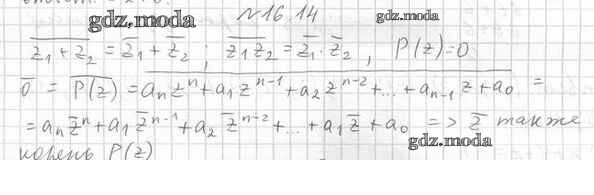 gdz.moda №16.14 gdz.moda
\overline{z_1 + z_2} = \overline{z}_1 + \overline{z}_2 ; \overline{z_1 z_2} = \overline{z}_1 · \overline{z}_2 , P(z)=0
\overline{0} = \overline{P(z)} = \overline{a_n z^n + a_1 z^{n-1} + a_2 z^{n-2} + ... + a_{n-1} z + a_0} =
= a_n \overline{z}^n + a_1 \overline{z}^{n-1} + a_2 \overline{z}^{n-2} + ... + a_1 \overline{z} + a_0 => \overline{z} также
gdz.moda
корень P(z)